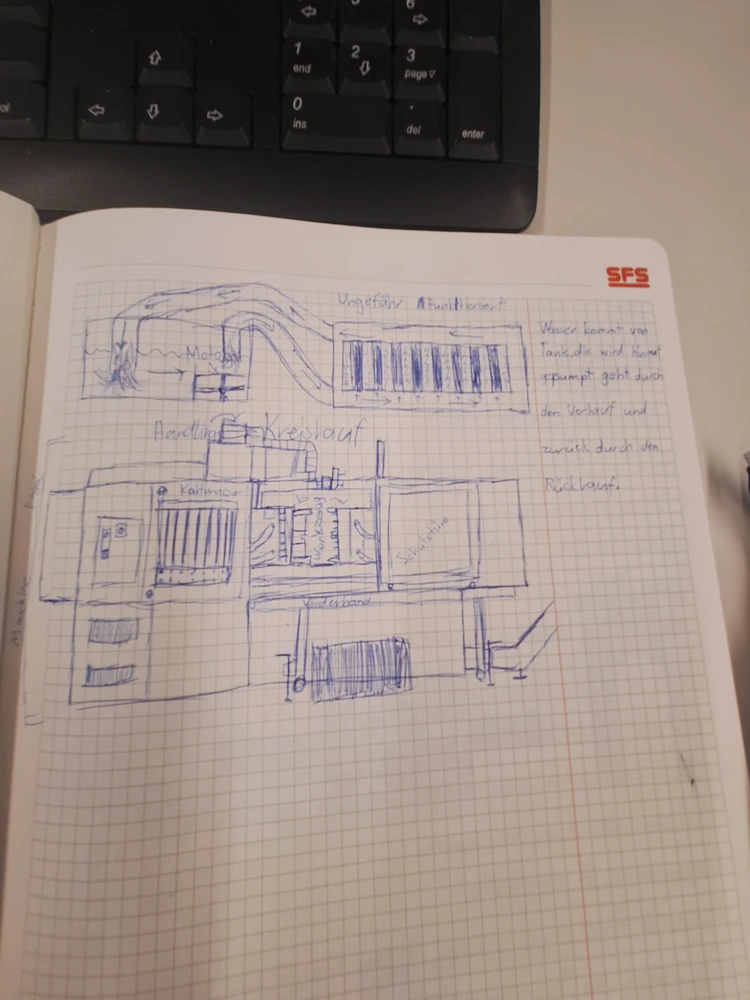 6
1
end
2
3
page
0
ins
del
enter
SFS
Ungefähr Funktioniert
Wasser kommt von
Tank, die wird hinauf
gepumpt geht durch
den Vorlauf und
zurück durch den
Rücklauf.
Motor
Handling Kreislauf
Werkzeug
Schutztüre
Förderband